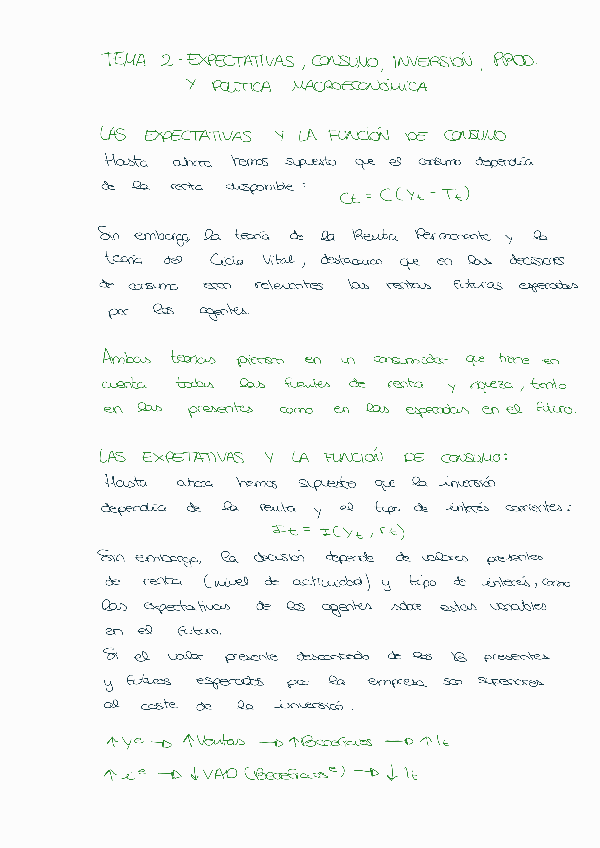 TEMA 2 - EXPECTATIVAS, CONSUMO, INVERSIÓN, PROD.
Y POLÍTICA MACROECONÓMICA
LAS EXPECTATIVAS Y LA FUNCIÓN DE CONSUMO
Hasta ahora hemos supuesto que el consumo dependía
de la renta disponible: Ct = C(Yt - Tt)
Sin embargo, la teoría de la Renta Permanente y la
teoría del Ciclo Vital, destacan que en las decisiones
de consumo son relevantes las rentas futuras esperadas
por los agentes.
Ambas teorías piensan en un consumidor que tiene en
cuenta todas las fuentes de renta y riqueza, tanto
en las presentes como en las esperadas en el futuro.
LAS EXPETATIVAS Y LA FUNCIÓN DE CONSUMO:
Hasta ahora hemos supuesto que la inversión
dependía de la renta y el tipo de interés corrientes:
It = I(Yt, rt)
Sin embargo, la decisión depende de valores presentes
de renta (nivel de actividad) y tipo de interés, como
las expectativas de los agentes sobre estas variables
en el futuro.
Si el valor presente descontado de los Bº presentes
y futuros esperados por la empresa son superiores
al coste de la inversión.
↑Yᵉ → ↑Ventas → ↑Beneficios → ↑It
↑rᵉ → ↓VAD (Beneficiosᵉ) → ↓It